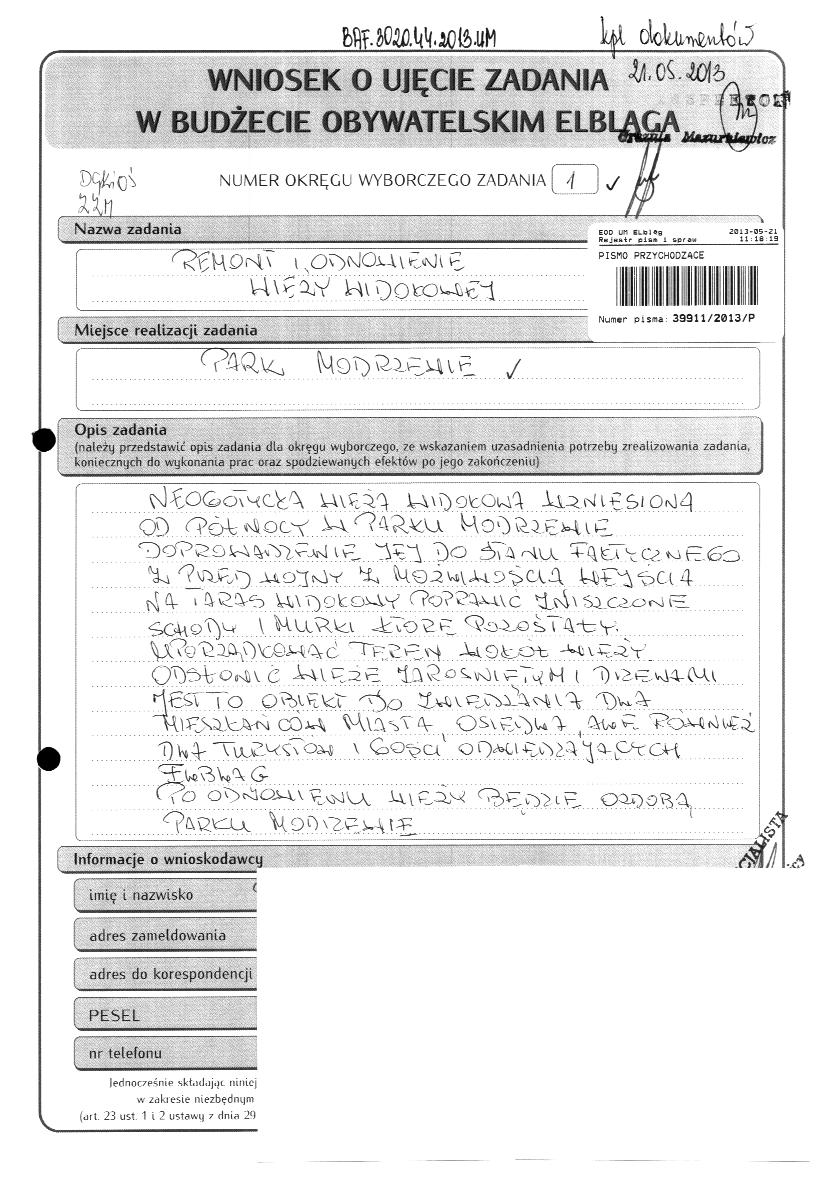 BAF.3020.44.2013.UM
kpl dokumentów
21.05.2013
WNIOSEK O UJĘCIE ZADANIA
W BUDŻECIE OBYWATELSKIM ELBLĄGA
Urszula Mazurkiewicz
DGKiOŚ
ZZM
NUMER OKRĘGU WYBORCZEGO ZADANIA 1 ✓
Nazwa zadania
EOD UM Elbląg 2013-05-21
Rejestr pism i spraw 11:18:19
PISMO PRZYCHODZĄCE
Numer pisma: 39911/2013/P
REMONT I ODNOWIENIE
WIEŻY WIDOKOWEJ
Miejsce realizacji zadania
PARK MODRZEWIE ✓
Opis zadania
(należy przedstawić opis zadania dla okręgu wyborczego, ze wskazaniem uzasadnienia potrzeby zrealizowania zadania,
koniecznych do wykonania prac oraz spodziewanych efektów po jego zakończeniu)
NEOGOTYCKA WIEŻA WIDOKOWA WZNIESIONA
OD PÓŁNOCY W PARKU MODRZEWIE
DOPROWADZENIE JEJ DO STANU FAKTYCZNEGO
Z PRZED WOJNY Z MOŻLIWOŚCIĄ WEJŚCIA
NA TARAS WIDOKOWY POPRAWIĆ ZNISZCZONE
SCHODY I MURKI KTÓRE POZOSTAŁY.
UPORZĄDKOWAĆ TEREN WOKÓŁ WIEŻY
ODSŁONIĆ WIEŻE ZAROŚNIĘTYMI DRZEWAMI
JEST TO OBIEKT DO ZWIEDZANIA DLA
MIESZKAŃCÓW MIASTA, OSIEDLA, ALE RÓWNIEŻ
DLA TURYSTÓW I GOŚCI ODWIEDZAJĄCYCH
ELBLĄG
PO ODNOWIENIU WIEŻY BĘDZIE OZDOBĄ
PARKU MODRZEWIE
Informacje o wnioskodawcy
imię i nazwisko
adres zameldowania
adres do korespondencji
PESEL
nr telefonu
Jednocześnie składając niniej
w zakresie niezbędnym
(art. 23 ust. 1 i 2 ustawy z dnia 29